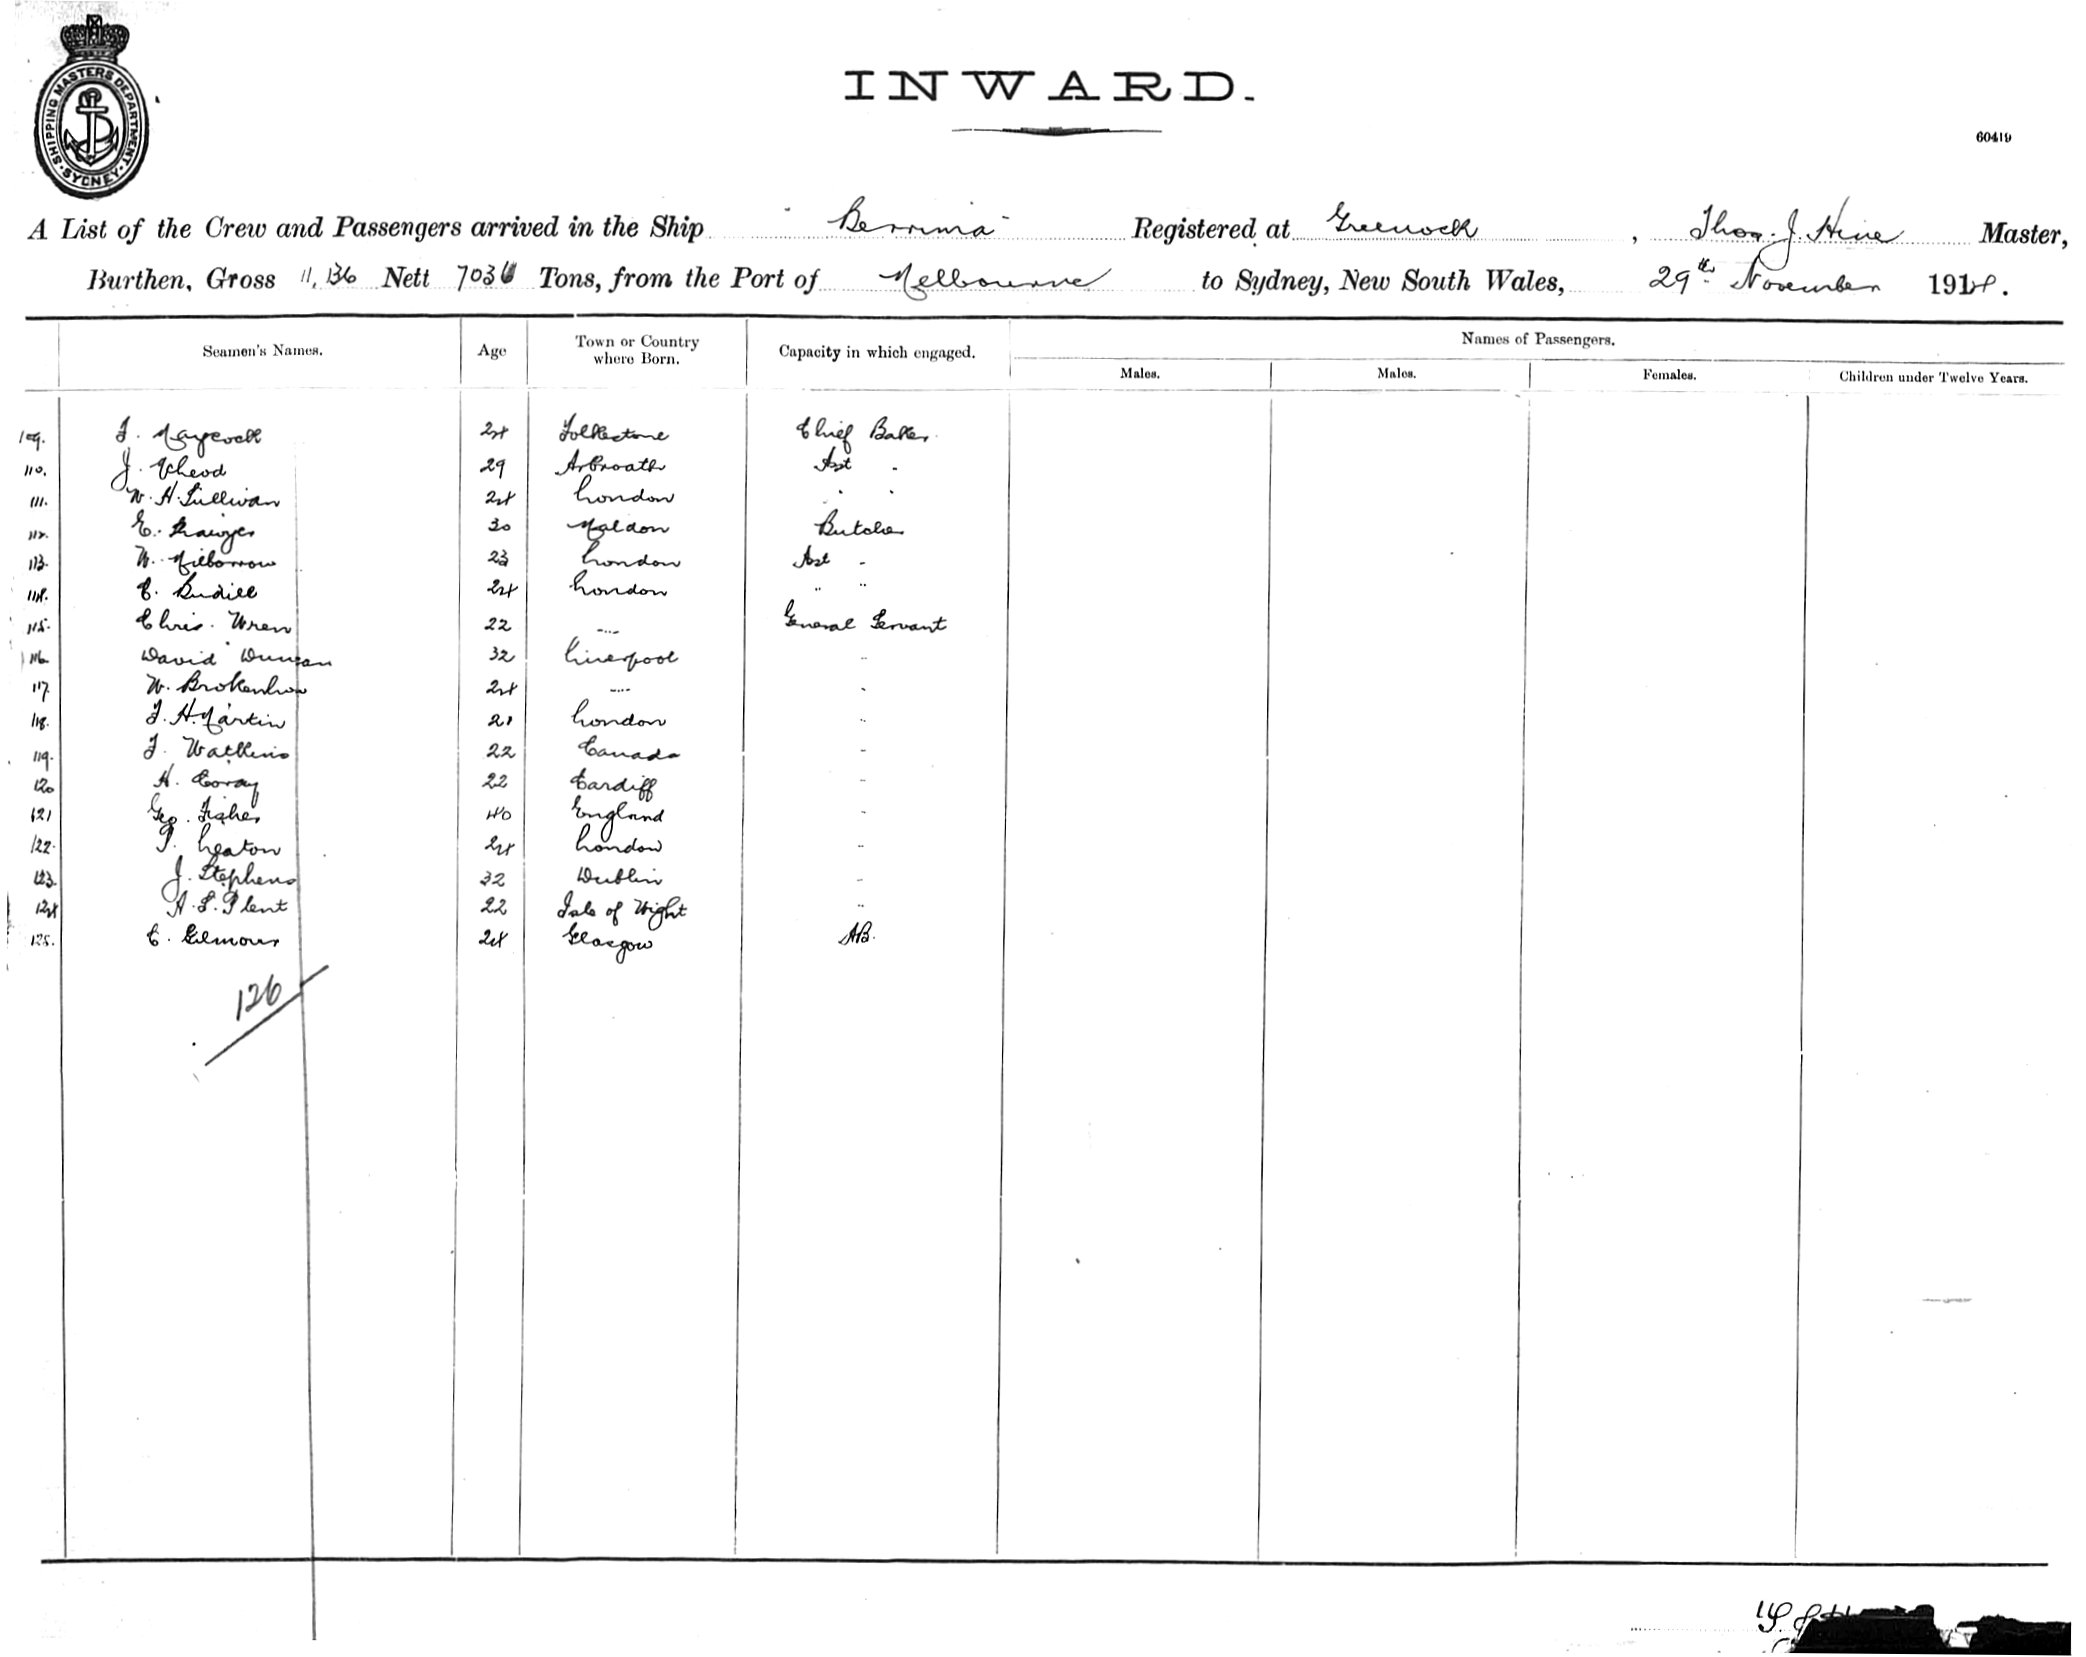 SHIPPING MASTERS DEPARTMENT · SYDNEY ·
INWARD.
60419
A List of the Crew and Passengers arrived in the Ship "Berrima" Registered at Greenock, Thos. J. Hine Master,
Burthen, Gross 11,136 Nett 7036 Tons, from the Port of Melbourne to Sydney, New South Wales, 29th November 1914.
Seamen's Names. Age Town or Country where Born. Capacity in which engaged. Names of Passengers.
Males. Males. Females. Children under Twelve Years.
109. F. Maycock 24 Folkestone Chief Baker
110. J. 29 Arbroath Asst "
111. W. H. Sullivan 24 London " "
112. E. 30 Maldon Butcher
113. W. Milborrow 23 London Asst "
114. C. 24 London " "
115. Chris. Wren 22 " General Servant
116. David Duncan 32 Liverpool "
117. W. 24 " "
118. F. H. Martin 21 London "
119. F. Watkins 22 Canada "
120 H. Coray 22 Cardiff "
121 Geo. Fisher 40 England "
122. P. Leaton 24 London "
123. J. Stephens 32 Dublin "
124 A. S. Plent 22 Isle of Wight "
125. C. Gilmour 24 Glasgow AB.
126